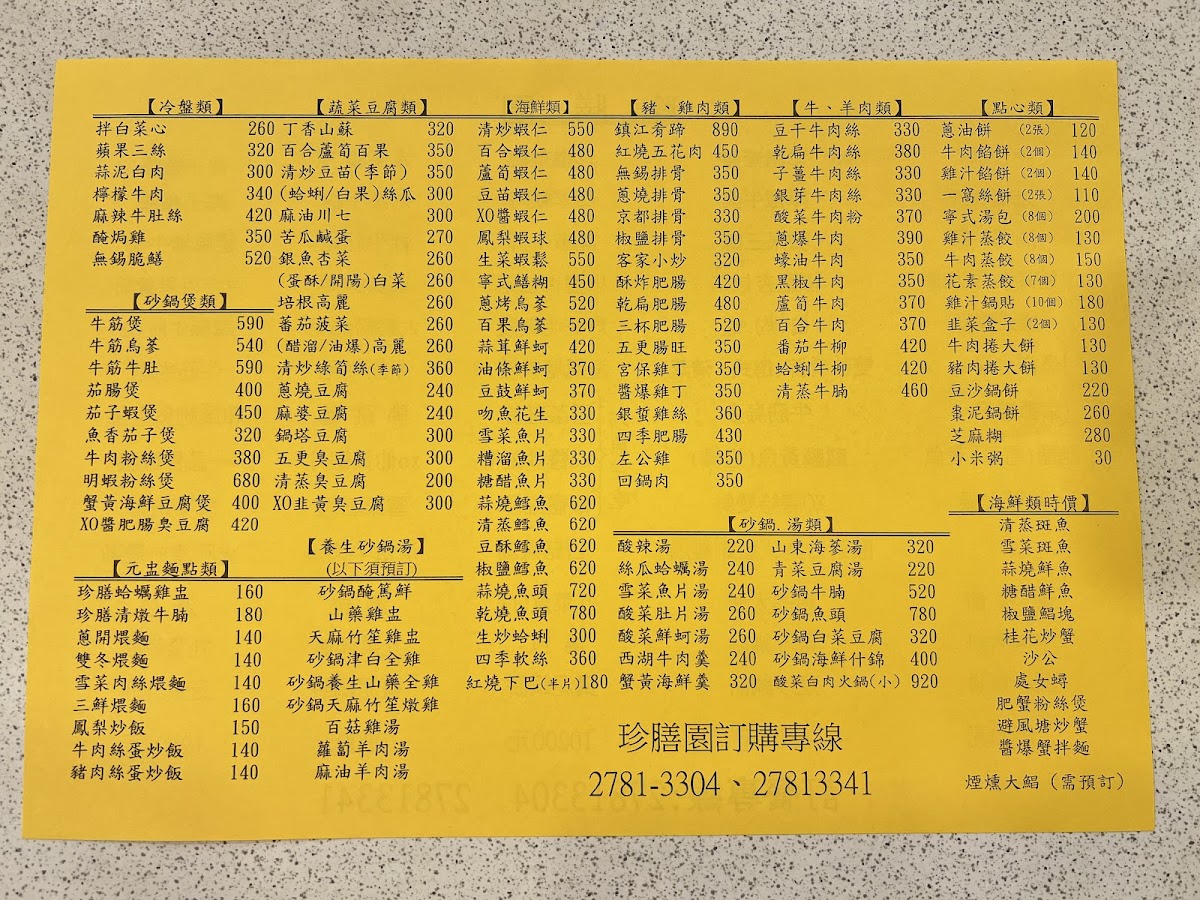 【冷盤類】
拌白菜心 260
蘋果三絲 320
蒜泥白肉 300
檸檬牛肉 340
麻辣牛肚絲 420
醃焗雞 350
無錫脆鱔 520
【砂鍋煲類】
牛筋煲 590
牛筋烏蔘 540
牛筋牛肚 590
茄腸煲 400
茄子蝦煲 450
魚香茄子煲 320
牛肉粉絲煲 380
明蝦粉絲煲 680
蟹黃海鮮豆腐煲 400
XO醬肥腸臭豆腐 420
【元盅麵點類】
珍膳蛤蠣雞盅 160
珍膳清燉牛腩 180
蔥開煨麵 140
雙冬煨麵 140
雪菜肉絲煨麵 140
三鮮煨麵 160
鳳梨炒飯 150
牛肉絲蛋炒飯 140
豬肉絲蛋炒飯 140
【蔬菜豆腐類】
丁香山蘇 320
百合蘆筍百果 350
清炒豆苗(季節) 350
(蛤蜊/白果)絲瓜 300
麻油川七 300
苦瓜鹹蛋 270
銀魚杏菜 260
(蛋酥/開陽)白菜 260
培根高麗 260
蕃茄菠菜 260
(醋溜/油爆)高麗 260
清炒綠筍絲(季節) 360
蔥燒豆腐 240
麻婆豆腐 240
鍋塔豆腐 300
五更臭豆腐 300
清蒸臭豆腐 200
XO韭黃臭豆腐 300
【養生砂鍋湯】
(以下須預訂)
砂鍋醃篤鮮
山藥雞盅
天麻竹笙雞盅
砂鍋津白全雞
砂鍋養生山藥全雞
砂鍋天麻竹笙燉雞
百菇雞湯
蘿蔔羊肉湯
麻油羊肉湯
【海鮮類】
清炒蝦仁 550
百合蝦仁 480
蘆筍蝦仁 480
豆苗蝦仁 480
XO醬蝦仁 480
鳳梨蝦球 480
生菜蝦鬆 550
寧式鱔糊 450
蔥烤烏蔘 520
百果烏蔘 520
蒜茸鮮蚵 420
油條鮮蚵 370
豆鼓鮮蚵 370
吻魚花生 330
雪菜魚片 330
糟溜魚片 330
糖醋魚片 330
蒜燒鱈魚 620
清蒸鱈魚 620
豆酥鱈魚 620
椒鹽鱈魚 620
蒜燒魚頭 720
乾燒魚頭 780
生炒蛤蜊 300
四季軟絲 360
紅燒下巴(半片)180
【豬、雞肉類】
鎮江肴蹄 890
紅燒五花肉 450
無錫排骨 350
蔥燒排骨 350
京都排骨 330
椒鹽排骨 350
客家小炒 320
酥炸肥腸 420
乾扁肥腸 480
三杯肥腸 520
五更腸旺 350
宮保雞丁 350
醬爆雞丁 350
銀蜇雞絲 360
四季肥腸 430
左公雞 350
回鍋肉 350
【牛、羊肉類】
豆干牛肉絲 330
乾扁牛肉絲 380
子薑牛肉絲 330
銀芽牛肉絲 330
酸菜牛肉粉 370
蔥爆牛肉 390
蠔油牛肉 350
黑椒牛肉 350
蘆筍牛肉 370
百合牛肉 370
番茄牛柳 420
蛤蜊牛柳 420
清蒸牛腩 460
【砂鍋.湯類】
酸辣湯 220
絲瓜蛤蠣湯 240
雪菜魚片湯 240
酸菜肚片湯 260
酸菜鮮蚵湯 260
西湖牛肉羹 240
蟹黃海鮮羹 320
山東海蔘湯 320
青菜豆腐湯 220
砂鍋牛腩 520
砂鍋魚頭 780
砂鍋白菜豆腐 320
砂鍋海鮮什錦 400
酸菜白肉火鍋(小) 920
【點心類】
蔥油餅 (2張) 120
牛肉餡餅 (2個) 140
雞汁餡餅 (2個) 140
一窩絲餅 (2張) 110
寧式湯包 (8個) 200
雞汁蒸餃 (8個) 130
牛肉蒸餃 (8個) 150
花素蒸餃 (7個) 130
雞汁鍋貼 (10個) 180
韭菜盒子 (2個) 130
牛肉捲大餅 130
豬肉捲大餅 130
豆沙鍋餅 220
棗泥鍋餅 260
芝麻糊 280
小米粥 30
【海鮮類時價】
清蒸斑魚
雪菜斑魚
蒜燒鮮魚
糖醋鮮魚
椒鹽鯧塊
桂花炒蟹
沙公
處女蟳
肥蟹粉絲煲
避風塘炒蟹
醬爆蟹拌麵
煙燻大鯧 (需預訂)
珍膳園訂購專線
2781-3304、27813341